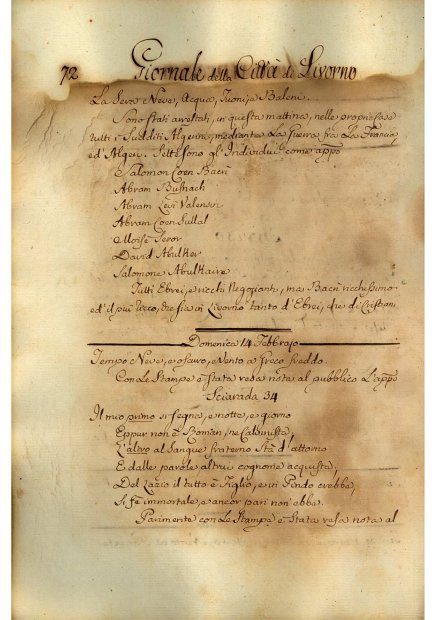 72 Giornale della Città di Livorno
La Sera Neve, Acqua, Tuoni, e Baleni.
Sono stati arrestati, in questa mattina, nelle proprie Case
tutti i Sudditi Algerini, mediante La Guerra fra La Francia,
ed' Algeri. Sette sono gl' Individui come app.o
Salomon Coen Bacri
Abram Busnach
Abram Levi Valensin
Abram Coen Sullal
Moisè Seror
David Abulker
Salomone Abulkaire
Tutti Ebrei, e ricchi Negozianti, ma Bacri ricchissimo
ed' il più ricco, che sia in Livorno tanto d' Ebrei, che di Cristiani
Domenica 14 Febbrajo
Tempo Neve, e oscuro, e Vento a freco freddo.
Con Le Stampe è stata resa nota al pubblico L'app.
Sciarada 34
Il mio primo si segna, e notte, e giorno
Eppur non è Roman, ne Calvinista,
L'altro al Sangue fraterno Sta d' attorno
E dalle parole altrui cognome acquista,
Del Lazio il tutto è Figlio, e in Pindo crebbe,
Si fè immortale, e ancor pari non' ebbe.
Parimente con Le Stampe è Stata resa nota al